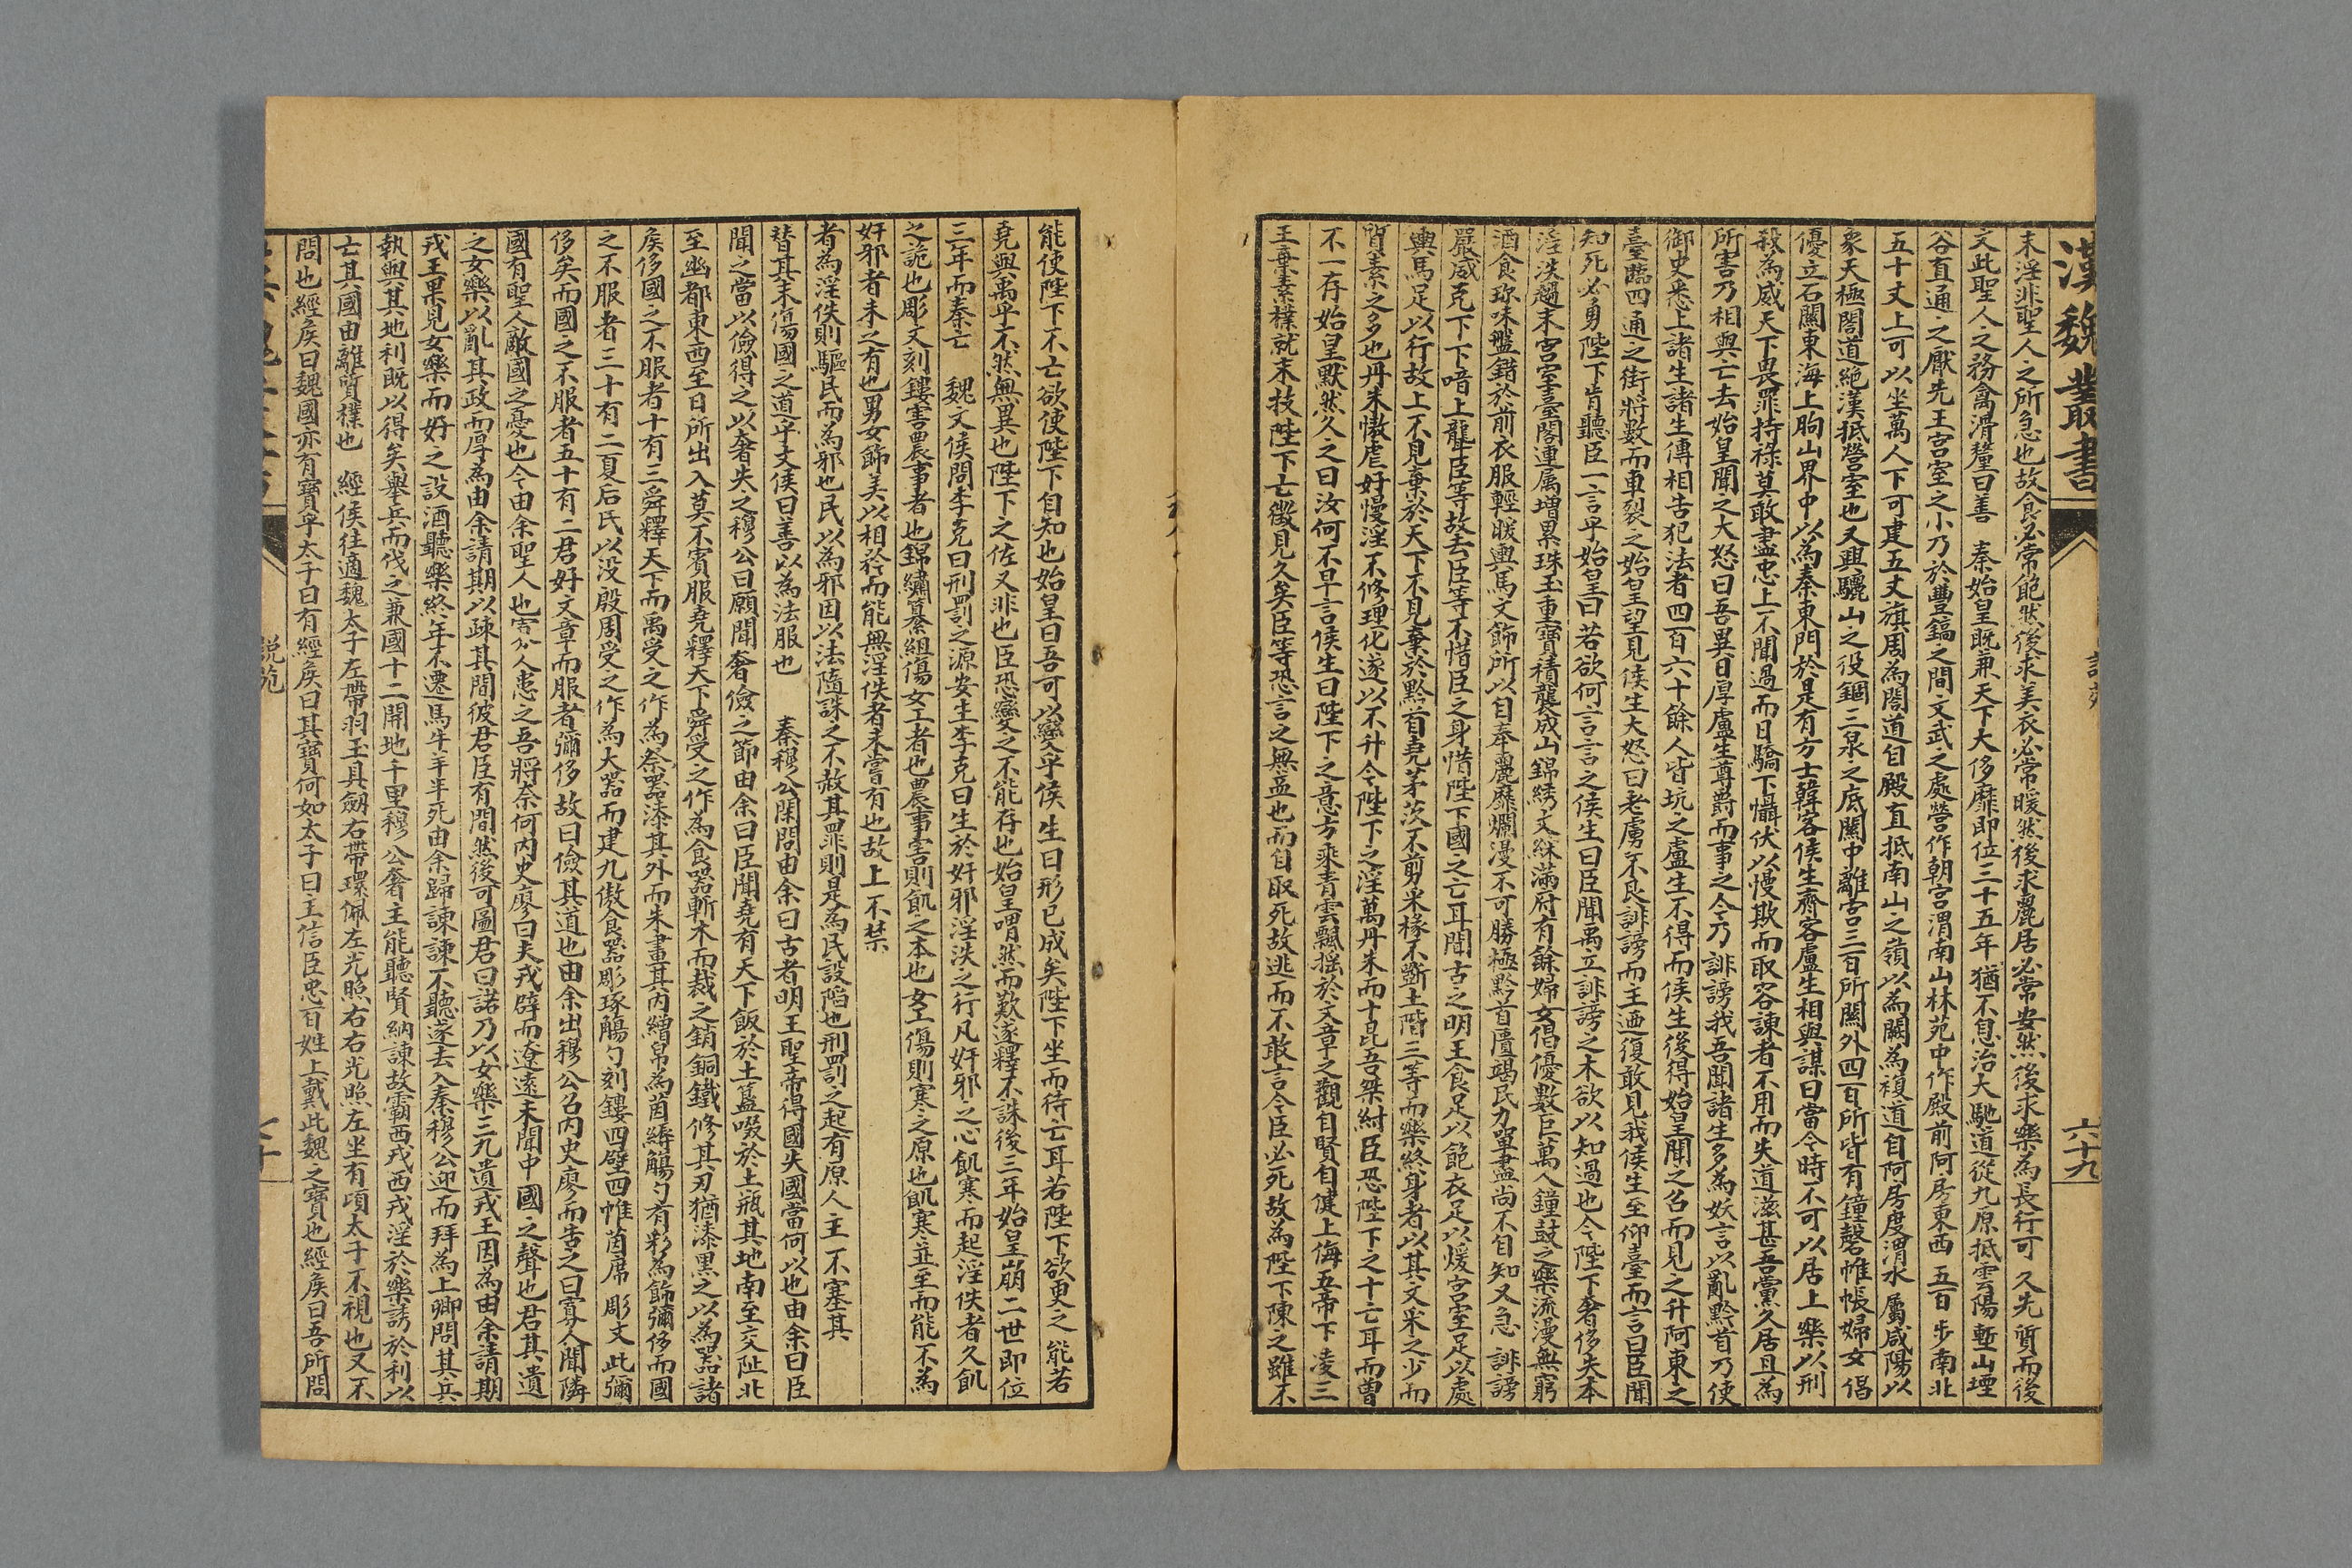 漢魏叢書
六十九
末淫非聖人之所急也故食必常飽然後求美衣必常暖然後求麗居必常安然後求樂為長行可久先質而後
文此聖人之務禽滑釐曰善　秦始皇既兼天下大侈靡即位三十五年猶不息治大馳道從九原抵雲陽塹山堙
谷直通之厭先王宮室之小乃於豐鎬之間文武之處營作朝宮渭南山林苑中作殿前阿房東西五百步南北
五十丈上可以坐萬人下可建五丈旗周為閣道自殿直抵南山之嶺以為闕為複道自阿房度渭水屬咸陽以
象天極閣道絕漢抵營室也又興驪山之役錮三泉之底關中離宮三百所關外四百所皆有鐘磬帷帳婦女倡
優立石闕東海上朐山界中以為秦東門於是有方士韓客侯生齊客盧生相與謀曰當今時不可以居上樂以刑
殺為威天下畏罪持祿莫敢盡忠上不聞過而日驕下懾伏以慢欺而取容諫者不用而失道滋甚吾黨久居且為
所害乃相與亡去始皇聞之大怒曰吾異日厚盧生尊爵而事之今乃誹謗我吾聞諸生多為妖言以亂黔首乃使
御史悉上諸生諸生傳相告犯法者四百六十餘人皆坑之盧生不得而侯生後得始皇聞之召而見之升阿東之
臺臨四通之街將數而車裂之始皇望見侯生大怒曰老虜不良誹謗而主迺復敢見我侯生至仰臺而言曰臣聞
知死必勇陛下肯聽臣一言乎始皇曰若欲何言言之侯生曰臣聞禹立誹謗之木欲以知過也今陛下奢侈失本
淫泆趨末宮室臺閣連屬增累珠玉重寶積襲成山錦綉文綵滿府有餘婦女倡優數巨萬人鐘鼓之樂流漫無窮
酒食珍味盤錯於前衣服輕暖輿馬文飾所以自奉麗靡爛漫不可勝極黔首匱竭民力單盡尚不自知又急誹謗
嚴威克下下喑上聾臣等故去臣等不惜臣之身惜陛下國之亡耳聞古之明王食足以飽衣足以煖宮室足以處
輿馬足以行故上不見棄於天下不見棄於黔首堯茅茨不剪采椽不斲土階三等而樂終身者以其文采之少而
質素之多也丹朱慠虐好慢淫不修理化遂以不升今陛下之淫萬丹朱而十昆吾桀紂臣恐陛下之十亡耳而曾
不一存始皇默然久之曰汝何不早言侯生曰陛下之意方乘青雲飄搖於文章之觀自賢自健上侮五帝下凌三
王棄素樸就末技陛下亡徵見久矣臣等恐言之無益也而自取死故逃而不敢言今臣必死故為陛下陳之雖不
能使陛下不亡欲使陛下自知也始皇曰吾可以變乎侯生曰形已成矣陛下坐而待亡耳若陛下欲更之能若
堯與禹乎不然無異也陛下之佐又非也臣恐變之不能存也始皇喟然而歎遂釋不誅後三年始皇崩二世即位
三年而秦亡　魏文侯問李克曰刑罰之源安生李克曰生於奸邪淫泆之行凡奸邪之心飢寒而起淫佚者久飢
之詭也彫文刻鏤害農事者也錦繡纂組傷女工者也農事害則飢之本也女工傷則寒之原也飢寒並至而能不為
奸邪者未之有也男女飾美以相矜而能無淫佚者未嘗有也故上不禁
者為淫佚則驅民而為邪也民以為邪因以法隨誅之不赦其罪則是為民設陷也刑罰之起有原人主不塞其
替其末傷國之道乎文侯曰善以為法服也　秦穆公閑問由余曰古者明王聖帝得國失國當何以也由余曰臣
聞之當以儉得之以奢失之穆公曰願聞奢儉之節由余曰臣聞堯有天下飯於土簋啜於土瓶其地南至交阯北
至幽都東西至日所出入莫不賓服堯釋天下舜受之作為食器斬木而裁之銷銅鐵修其刃猶漆黑之以為器諸
侯侈國之不服者十有三舜釋天下而禹受之作為祭器漆其外而朱畫其內繒帛為茵縟觴勺有彩為飾彌侈而國
之不服者三十有二夏后氏以沒殷周受之作為大器而建九傲食器彫琢觴勺刻鏤四壁四帷茵席彫文此彌
侈矣而國之不服者五十有二君好文章而服者彌侈故曰儉其道也由余出穆公召內史廖而告之曰寡人聞隣
國有聖人敵國之憂也今由余聖人也寡人患之吾將奈何內史廖曰夫戎辟而遼遠未聞中國之聲也君其遺
之女樂以亂其政而厚為由余請期以疎其間彼君臣有間然後可圖君曰諾乃以女樂三九遺戎王因為由余請期
戎王果見女樂而好之設酒聽樂終年不遷馬牛羊半死由余歸諫諫不聽遂去入秦穆公迎而拜為上卿問其兵
執與其地利既以得矣舉兵而伐之兼國十二開地千里穆公奢主能聽賢納諫故霸西戎西戎淫於樂誘於利以
亡其國由離質樸也　經侯往適魏太子左帶羽玉具劒右帶環佩左光照右右光照左坐有頃太子不視也又不
問也經侯曰魏國亦有寶乎太子曰有經侯曰其寶何如太子曰主信臣忠百姓上戴此魏之寶也經侯曰吾所問
説苑